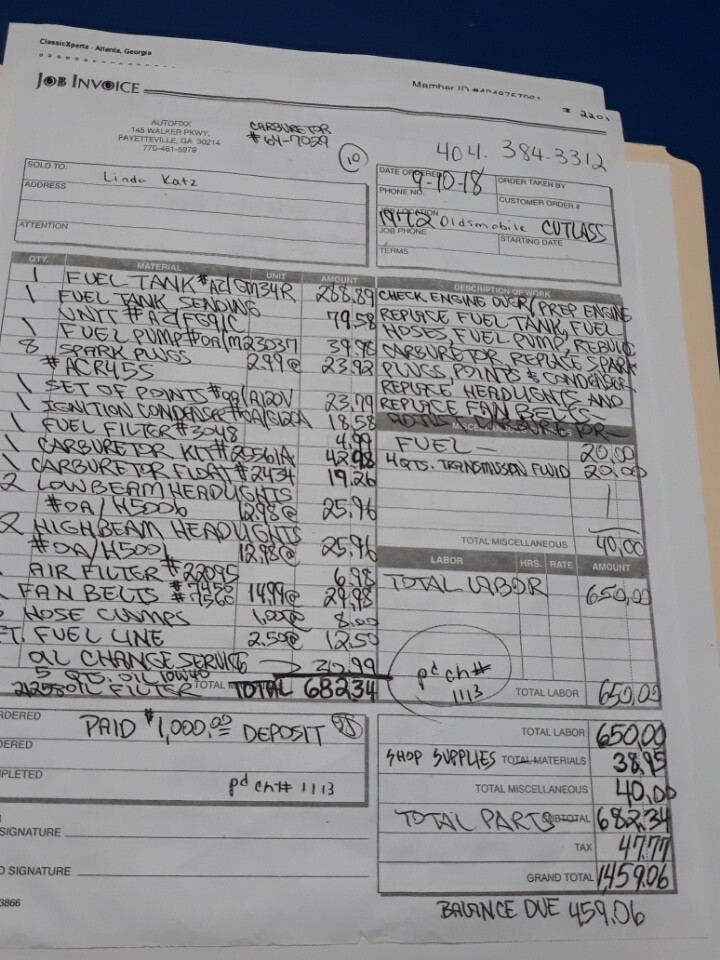 ClassicXperts - Atlanta, Georgia
Member ID
# 2201
JOB INVOICE
AUTOFIXX
145 WALKER PKWY.
FAYETTEVILLE, GA 30214
770-461-5979
CARBURETOR
# 64-7029
10
404. 384.3312
SOLD TO: Linda Katz
ADDRESS
ATTENTION
DATE ORDERED 9-10-18
ORDER TAKEN BY
PHONE NO.
CUSTOMER ORDER #
JOB LOCATION 1972 Oldsmobile CUTLASS
JOB PHONE
STARTING DATE
TERMS
QTY. MATERIAL UNIT AMOUNT
1 FUEL TANK #AZ/GM34R 288.89
1 FUEL TANK SENDING
UNIT #AZ/FG91C 79.58
1 FUEL PUMP #OA/M23037 39.98
8 SPARK PLUGS 2.99@ 23.92
# ACR45S
1 SET OF POINTS #OA/A120V 23.79
1 IGNITION CONDENSER 18.58
1 FUEL FILTER #3048 4.99
1 CARBURETOR KIT #20561A 42.98
1 CARBURETOR FLOAT #2434 19.26
2 LOWBEAM HEADLIGHTS
#OA/H5006 12.98@ 25.96
2 HIGHBEAM HEADLIGHTS
#OA/H5001 12.98@ 25.96
AIR FILTER #22095 6.98
FAN BELTS #7450 #7560 14.99@ 29.98
HOSE CLAMPS 1.00@ 8.00
FT. FUEL LINE 2.50@ 12.50
OIL CHANGE SERVICE 30.99
5 QTS. OIL 10W40
21258 OIL FILTER
TOTAL TOTAL 682.34
DESCRIPTION OF WORK
CHECK ENGINE OVER/PREP ENGINE
REPLACE FUEL TANK, FUEL
HOSES, FUEL PUMP, REBUILD
CARBURETOR REPLACE SPARK
PLUGS, POINTS & CONDENSER
REPLACE HEADLIGHTS AND
REPLACE FAN BELTS-
ADJUST CARBURETOR-
FUEL- 20.00
4 QTS. TRANSMISSION FLUID 20.00
TOTAL MISCELLANEOUS 40.00
LABOR HRS. RATE AMOUNT
TOTAL LABOR 650.00
pd ch#
1113
TOTAL LABOR 650.00
PAID $1,000.00 DEPOSIT
pd ch# 1113
SIGNATURE
SIGNATURE
3866
TOTAL LABOR 650.00
SHOP SUPPLIES TOTAL MATERIALS 38.95
TOTAL MISCELLANEOUS 40.00
TOTAL PARTS SUBTOTAL 682.34
TAX 47.77
GRAND TOTAL 1,459.06
BALANCE DUE 459.06